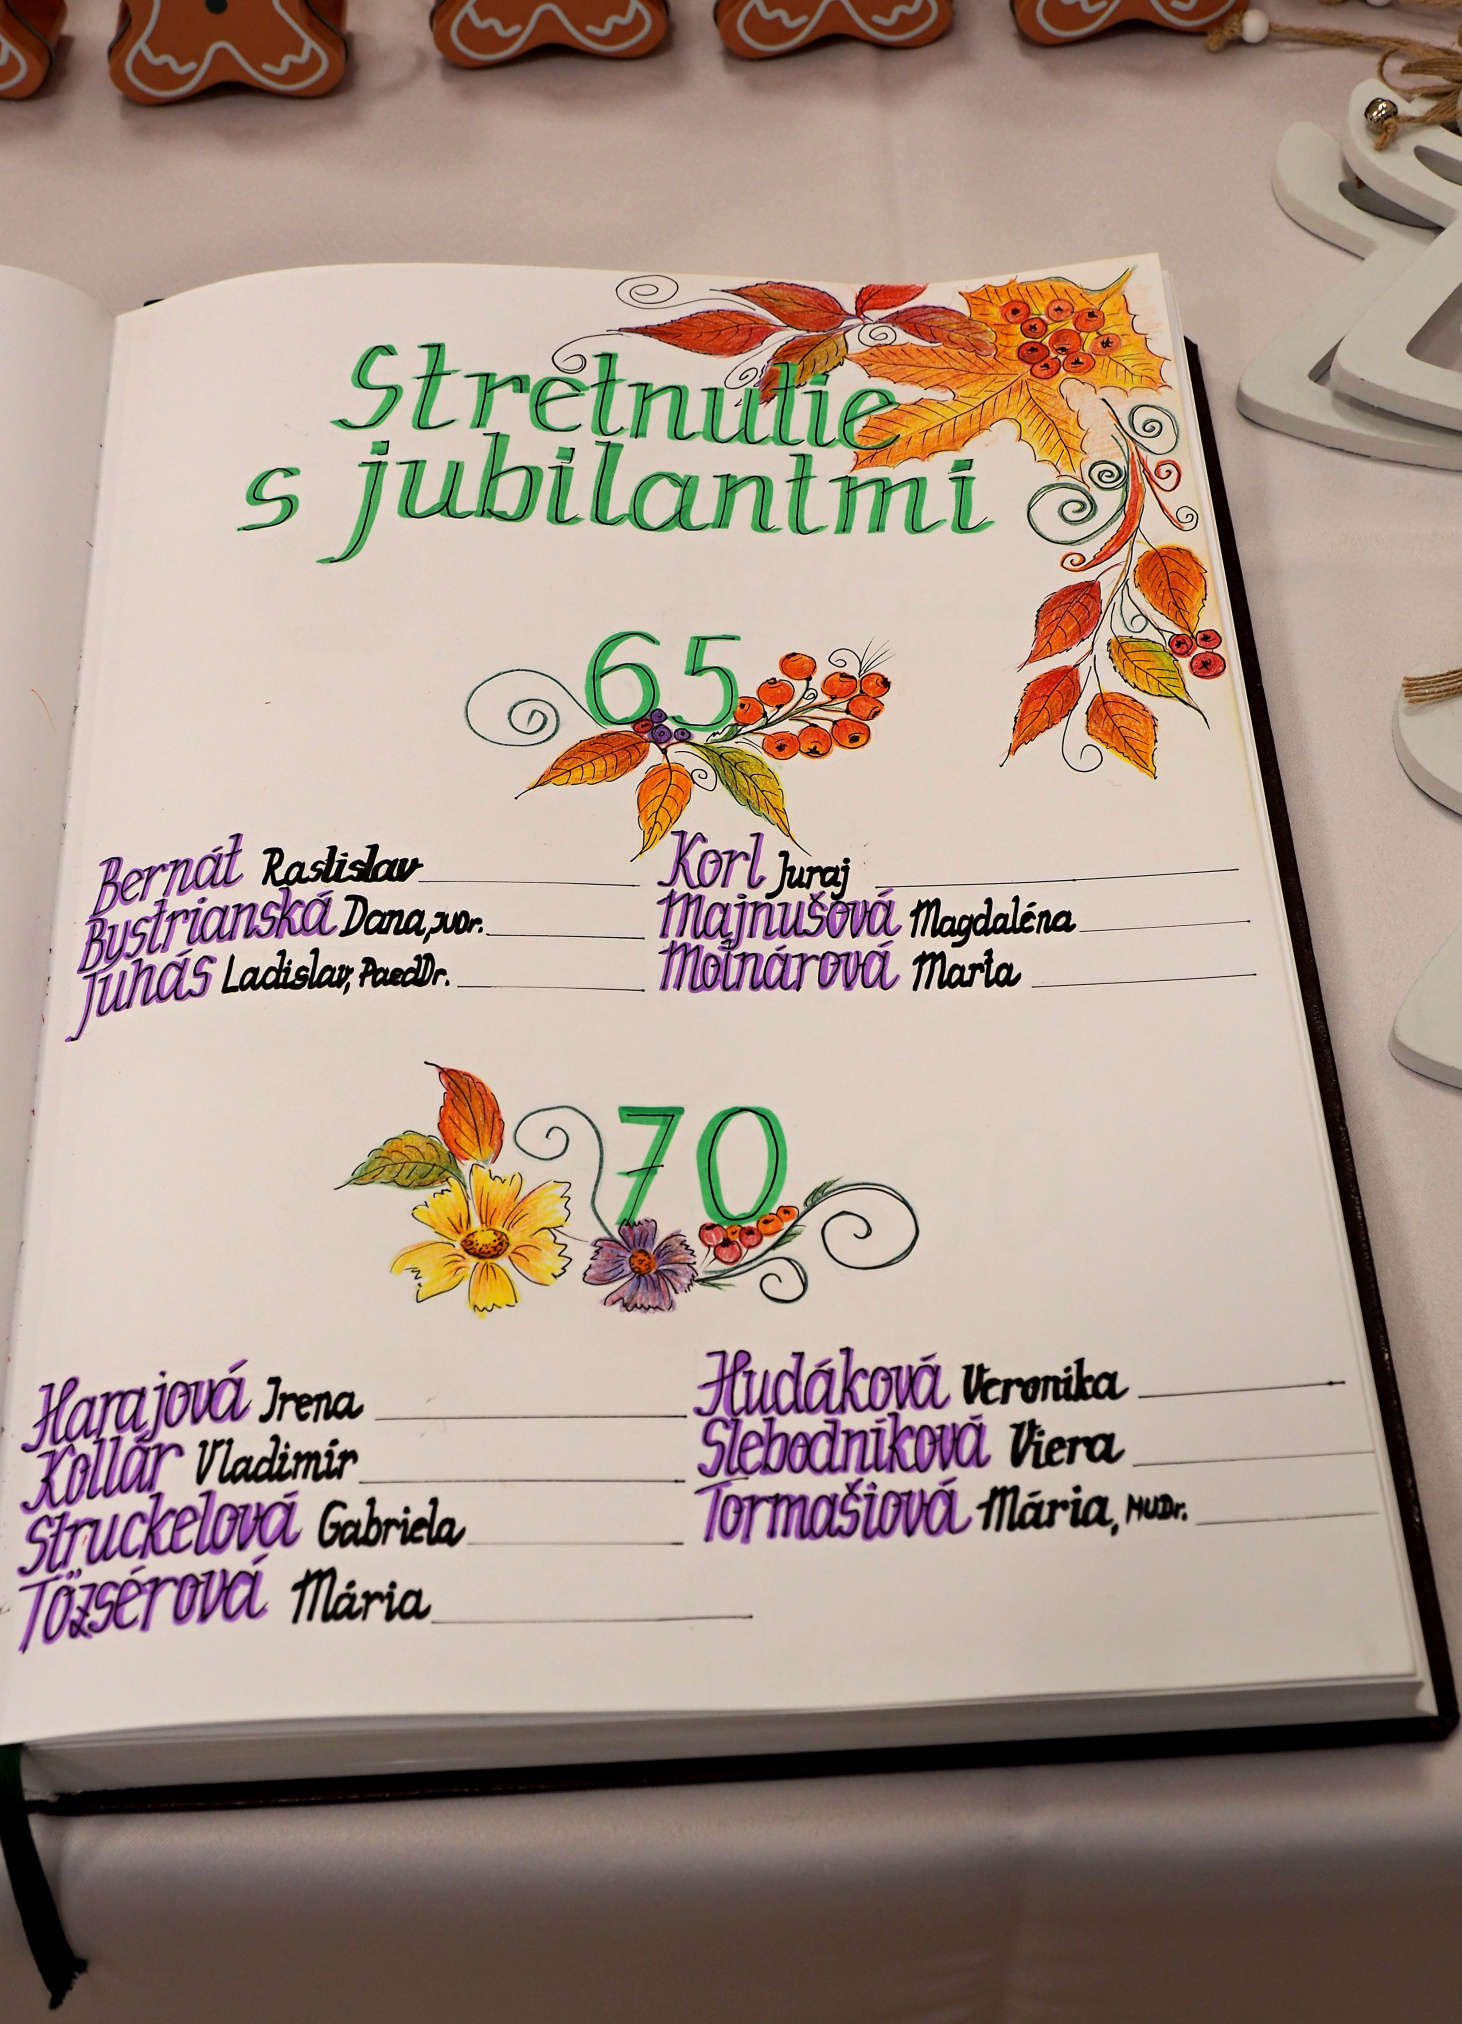 Stretnutie
s jubilantmi
65
Bernát Rastislav
Bystrianská Dana, JUDr.
Juhás Ladislav, PaedDr.
Korl Juraj
Majnušová Magdaléna
Molnárová Marta
70
Harajová Irena
Kollár Vladimír
Struckelová Gabriela
Tőzsérová Mária
Hudáková Veronika
Slebodníková Viera
Tormašiová Mária, MUDr.